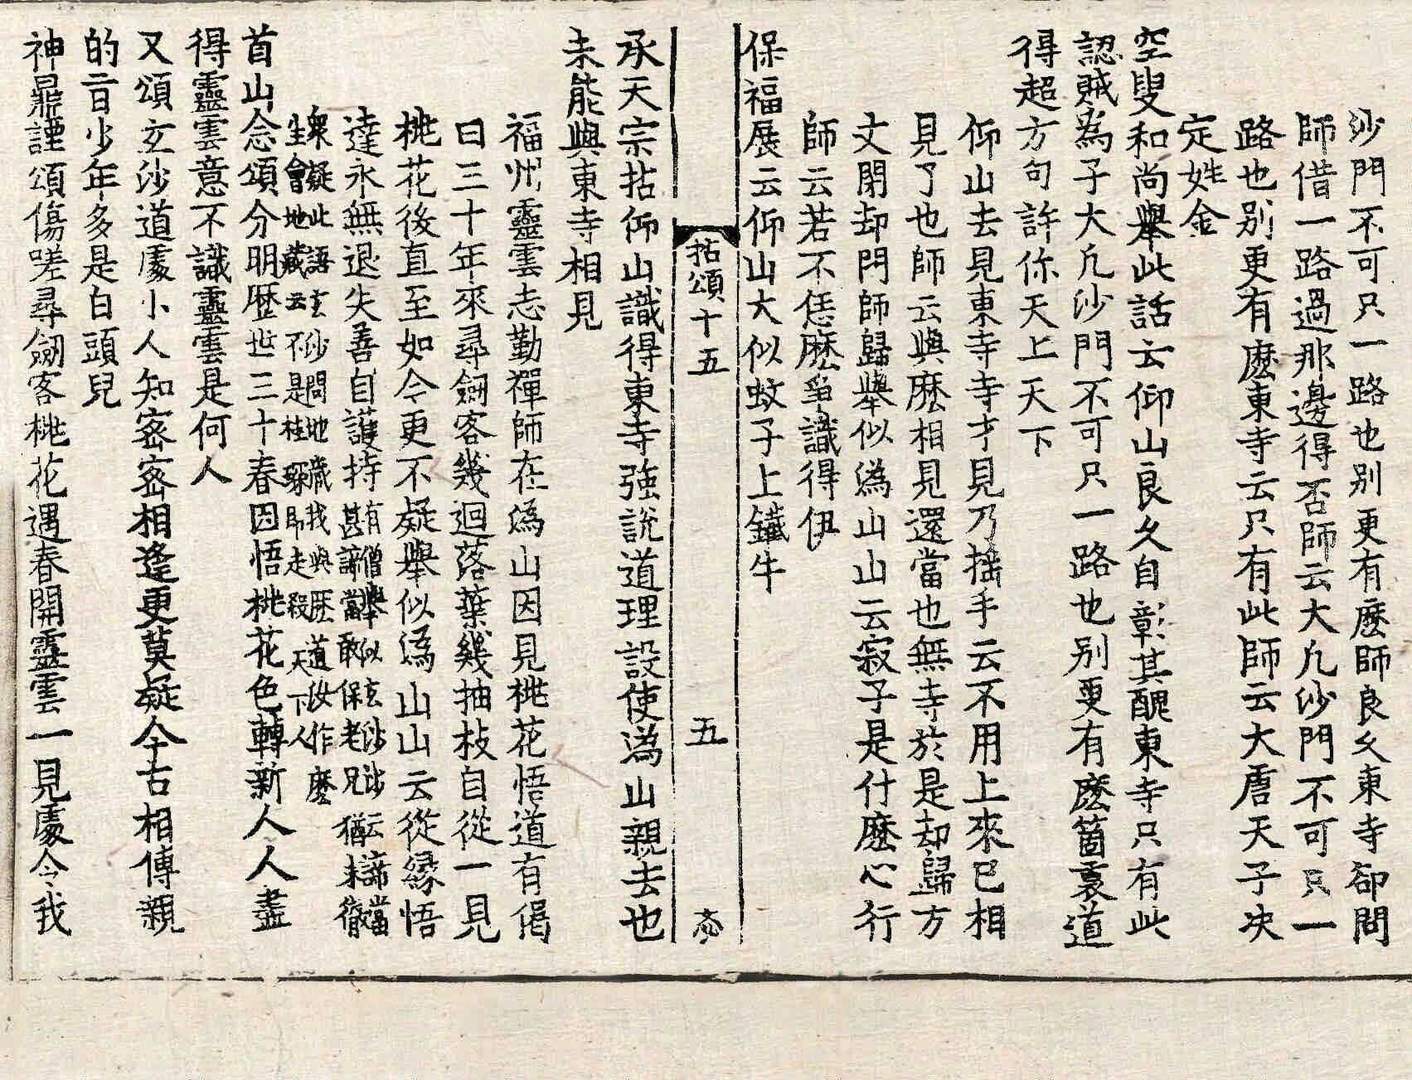 沙門不可只一路也別更有麽師良久東寺卻問
師借一路過那邊得否師云大凡沙門不可只一
路也別更有麽東寺云只有此師云大唐天子决
定姓金
空叟和尚舉此話云仰山良久自彰其醜東寺只有此
認賊爲子大凡沙門不可只一路也別更有麽箇裏道
得超方句許你天上天下
仰山去見東寺寺才見乃搖手云不用上來已相
見了也師云與麽相見還當也無寺於是却歸方
丈閉却門師歸舉似潙山山云寂子是什麽心行
師云若不恁麽爭識得伊
保福展云仰山大似蚊子上鐵牛
拈頌十五
五
承天宗拈仰山識得東寺強說道理設使潙山親去也
未能與東寺相見
福州靈雲志勤禪師在潙山因見桃花悟道有偈
曰三十年來尋劒客幾迴落葉幾抽枝自從一見
桃花後直至如今更不疑舉似潙山山云從緣悟
達永無退失善自護持有僧舉似玄沙沙云諦當
甚諦當敢保老兄猶未徹
衆疑此語玄沙問地藏我與麽道汝作麽
生會地藏云不是桂琛即走殺天下人
首山念頌分明歷世三十春因悟桃花色轉新人人盡
得靈雲意不識靈雲是何人
又頌玄沙道處小人知密密相逢更莫疑今古相傳親
的旨少年多是白頭兒
神鼎諲頌傷嗟尋劒客桃花遇春開靈雲一見處今我